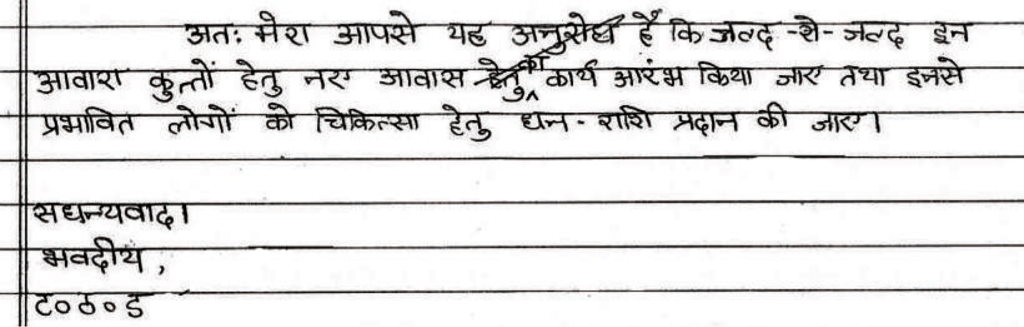 अतः मेरा आपसे यह अनुरोध है कि जल्द -से- जल्द इन
आवारा कुत्तों हेतु नए आवास का कार्य आरंभ किया जाए तथा इनसे
प्रभावित लोगों को चिकित्सा हेतु धन - राशि प्रदान की जाए।
सधन्यवाद।
भवदीय ,
ट०ठ०ड